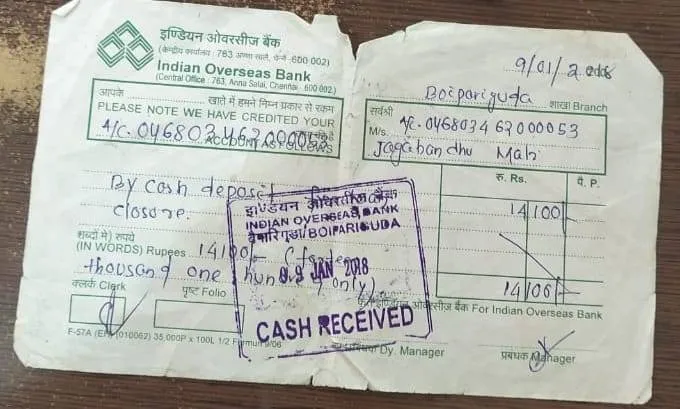 इण्डियन ओवरसीज बैंक
(केन्द्रीय कार्यालय : 763 अण्णा सालै, चेन्नै -600 002)
Indian Overseas Bank
(Central Office : 763, Anna Salai, Chennai - 600 002.)
आपके खाते में हमने निम्न प्रकार से रकम
PLEASE NOTE WE HAVE CREDITED YOUR
A/c. 046803462000053
ACCOUNT AS FOLLOWS
9/01/2018
Boipariguda शाखा Branch
सर्वश्री
M/s. A/c. 046803462000053
Jagabandhu Mali
रु. Rs. पै. P.
By cash deposit
closure.
14100/-
शब्दों में) रुपये
(IN WORDS) Rupees 14100/- (fourteen
thousand one hundred only)
14100/-
इण्डियन ओवरसीज बैंक
INDIAN OVERSEAS BANK
बैपारिगुडा/BOIPARIGUDA
09 JAN 2018
CASH RECEIVED
क्लर्क Clerk
पृष्ट Folio
इण्डियन ओवरसीज बैंक For Indian Overseas Bank
F-57A (EH) (010062) 35,000P x 100L 1/2 9/06
प्रबंधक Dy. Manager
प्रबंधक Manager